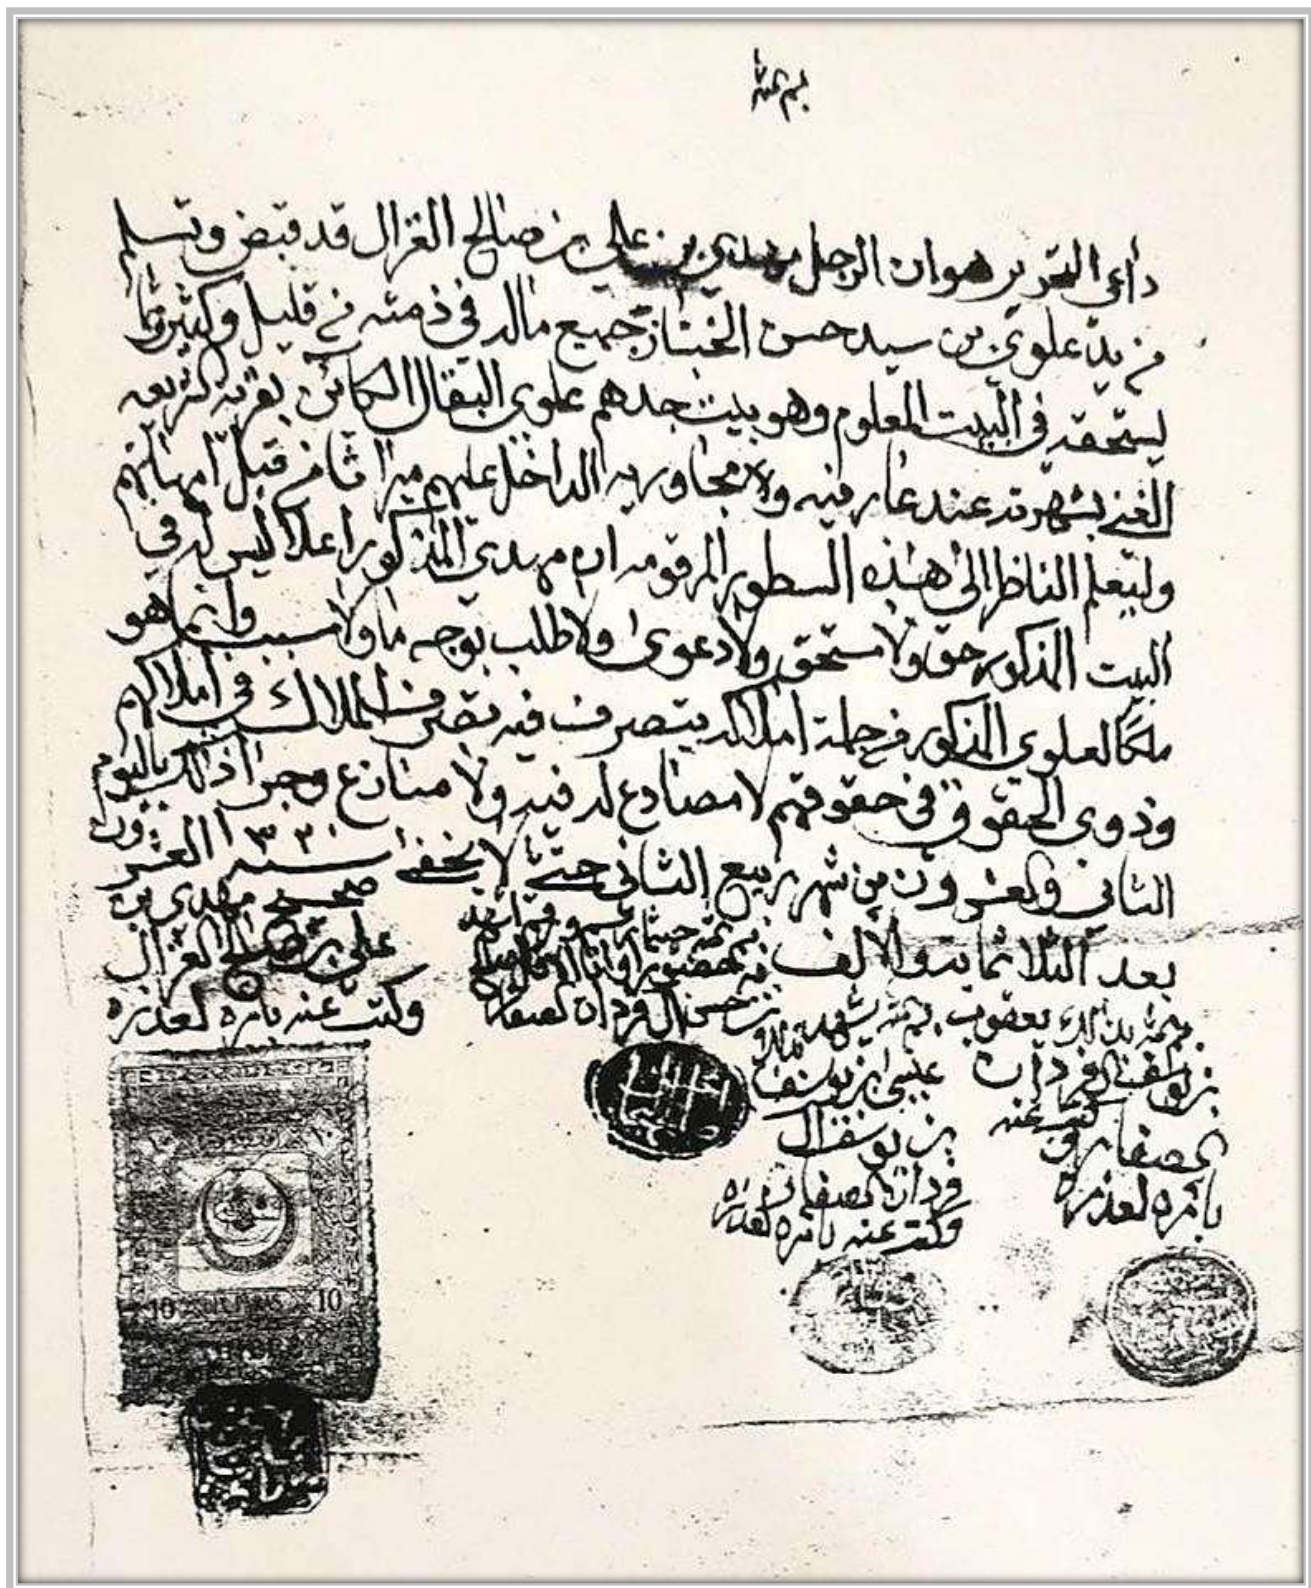 داعي التحرير هو ان الرجل مهدي بن علي بن صالح الغزال قد قبض وتسلم
من يد علوي بن سيد حسن الخباز جميع ماله في ذمته من قليل وكثير مما
يستحقه في البيت المعلوم وهو بيت جدهم علوي البقال الكائن بقرية
الغني بشهرته عند عارفيه ومجاوريه الداخل عليهم ميراثا من قبل امهاتهم
وليعلم الناظر الى هذه السطور المرقومه ان مهدي المذكور اعلا ليس له في
البيت المذكور حق ولا مستحق ولا دعوى ولا طلب بوجه ما ولا سبب وانما هو
ملكا لعلوي المذكور من جملة املاكه يتصرف فيه تصرف الملاك في املاكهم
وذوي الحقوق في حقوقهم لا مصادع له فيه ولا منازع وجرا ذالك باليوم
الثاني والعشرون من شهر ربيع الثاني حتى لا يخفى سنه ١٣٢٠ العشرون
بعد الثلاثمايه والالف
صحيح مهدي بن
علي بن صالح الغزال
وكتب عنه بامره لعذره
بن حسن ال فردان
يعقوب
بن يوسف ال فردان
وكتب عنه
بامره لعذره
يشهد بذلك
عيسى بن يوسف
بن يوسف ال
فردان
وكتب عنه بامره لعذره
10 10